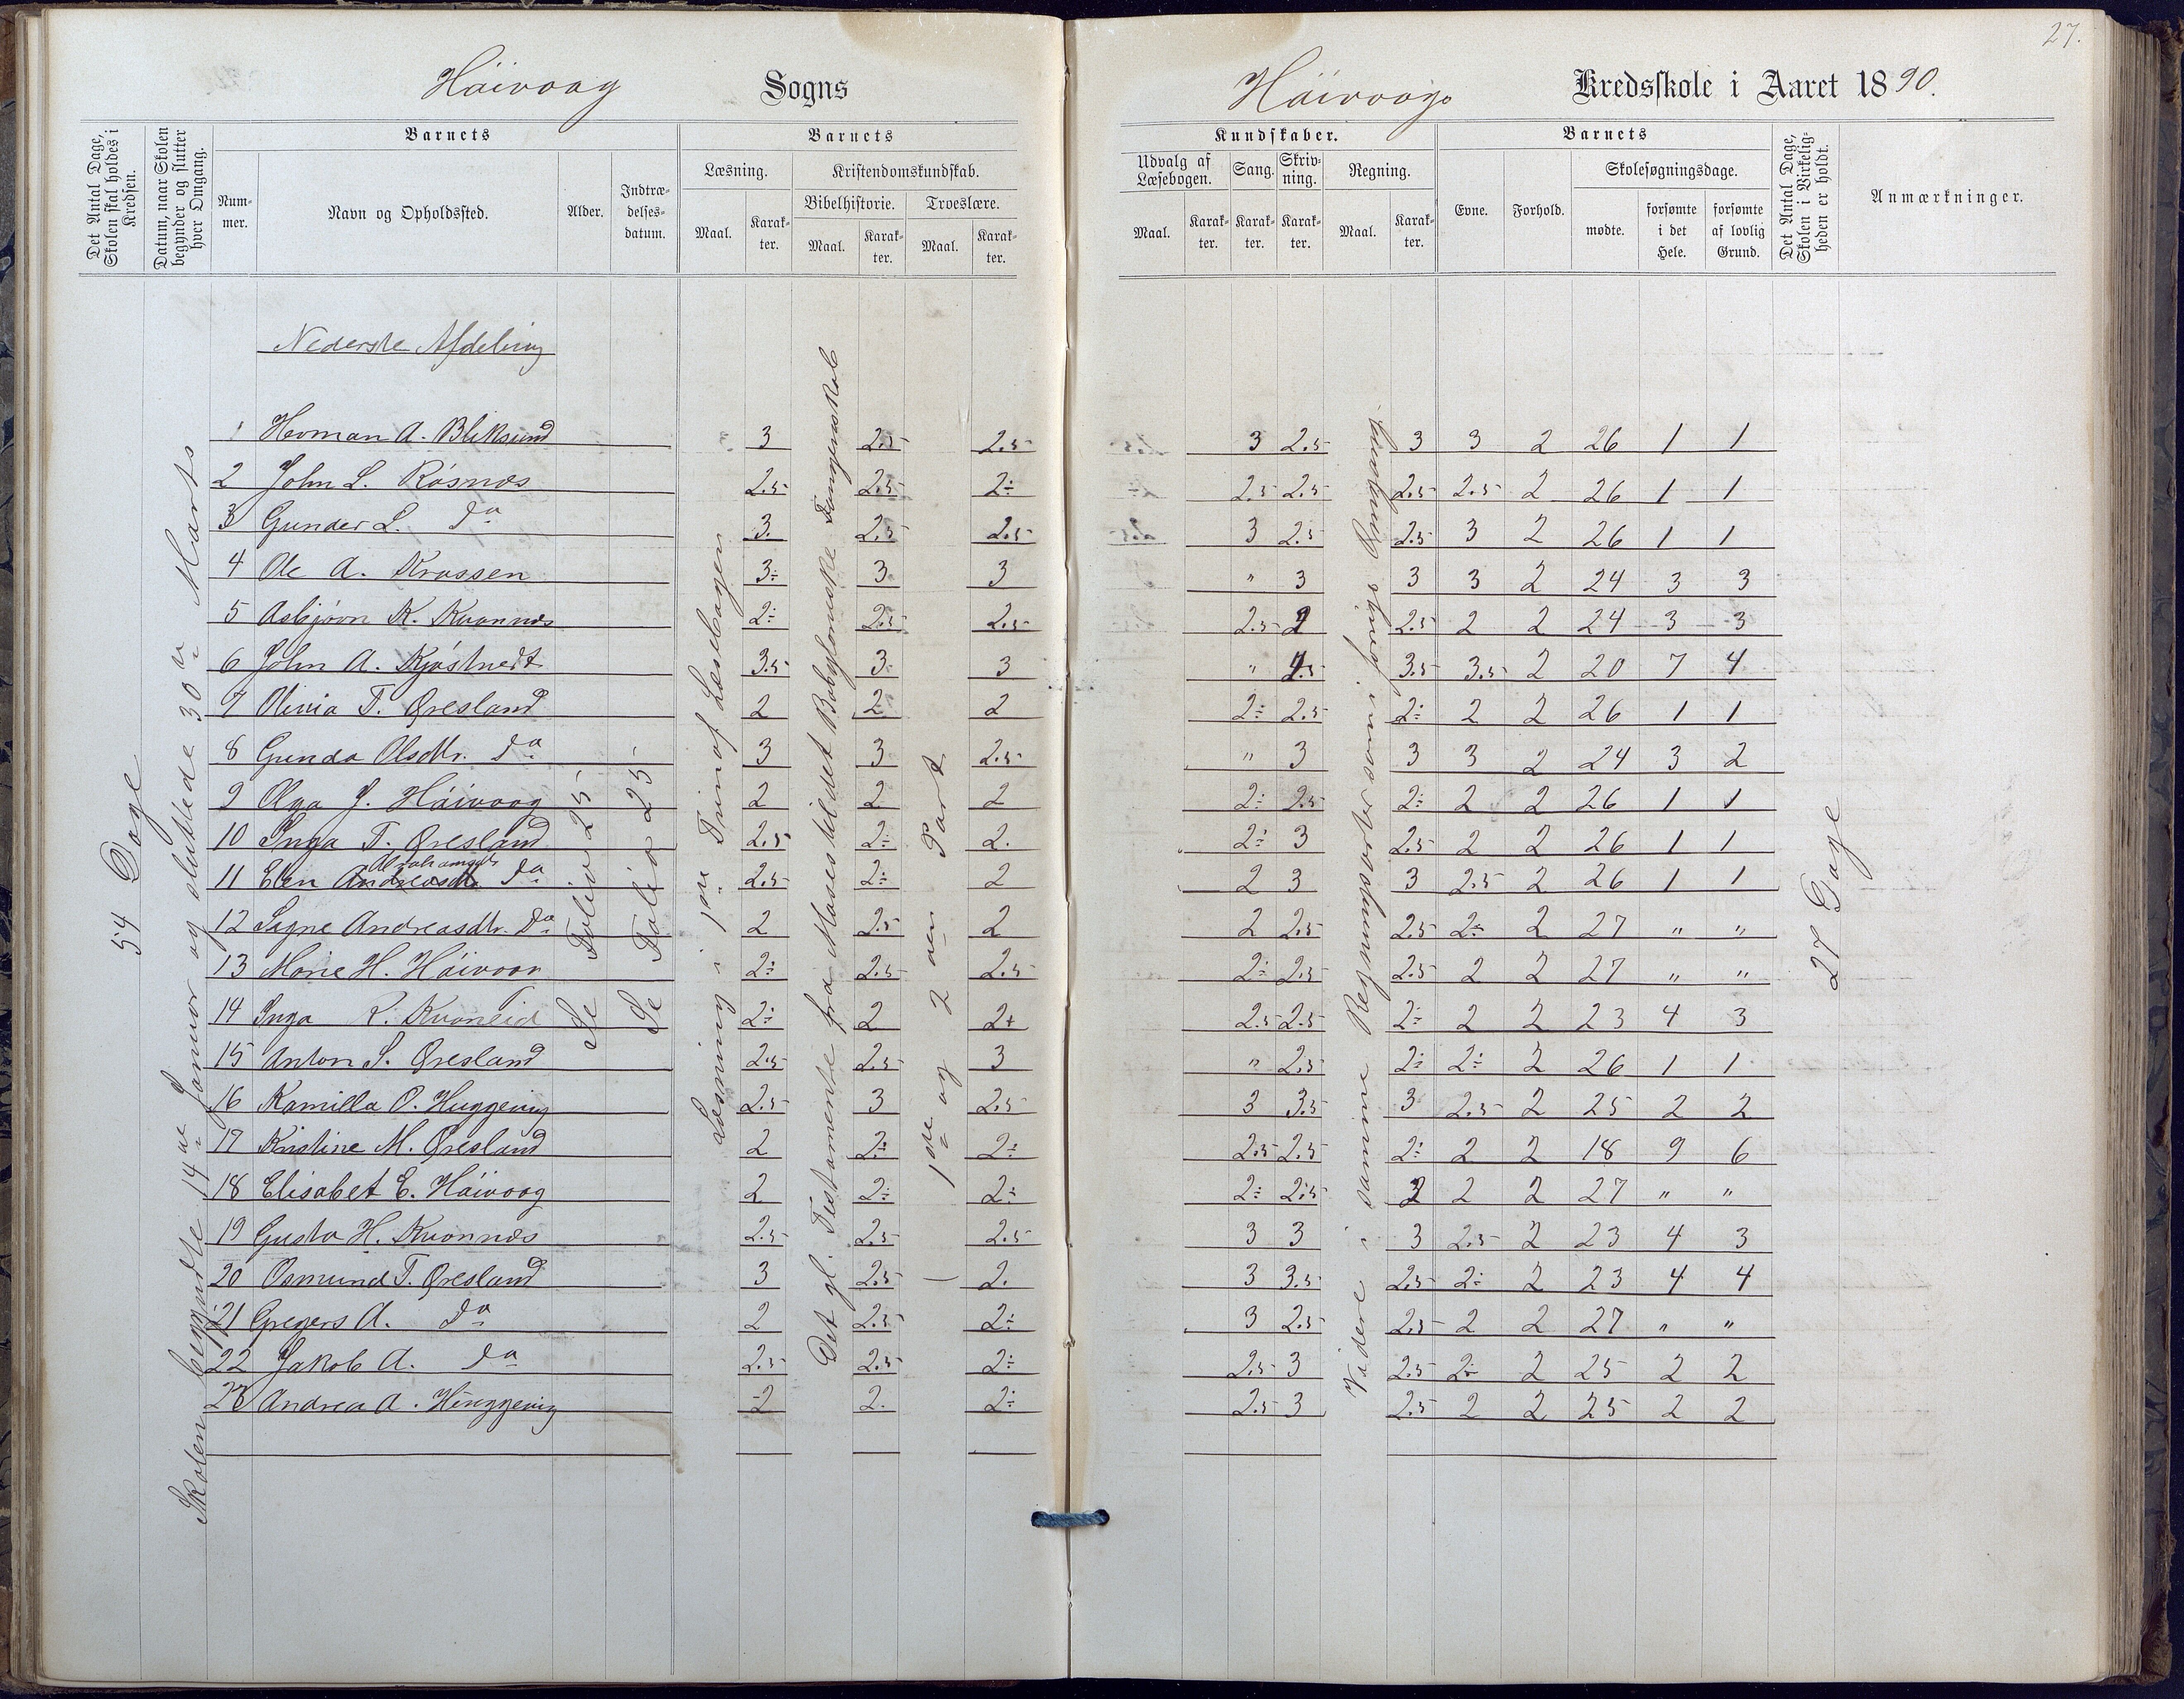 27.
Häivaag Sogns
Häivaags Kredsskole i Aaret 1890.
Det Antal Dage, Skolen skal holdes i Kredsen.
Datum, naar Skolen begynder og slutter hver Omgang.
Barnets
Nummer.
Navn og Opholdssted.
Alder.
Indtrædelsesdatum.
Barnets
Læsning.
Maal.
Karakter.
Kristendomskundskab.
Bibelhistorie.
Maal.
Karakter.
Troeslære.
Maal.
Karakter.
Kundskaber.
Udvalg af Læsebogen.
Maal.
Karakter.
Sang.
Karakter.
Skrivning.
Karakter.
Regning.
Maal.
Karakter.
Barnets
Evne.
Forhold.
Skolesøgningsdage.
mødte.
forsømte i det Hele.
forsømte af lovlig Grund.
Det Antal Dage, Skolen i Virkeligheden er holdt.
Anmærkninger.
Nederste Afdeling
54 Dage
Skolen begyndte 14de Januar og sluttede 30te Marts
Se Folio 25
Se Folio 25
Læsning i 1ste Trin af Læsebogen
Det gl. Testamente fra Moses til det Babyloniske Fangenskab
1ste og 2den Part
Videre i samme Regningsarter som i forrige Omgang.
27 Dage
1 Herman A. Bliksund 3 2.5 2.5 3 2.5 3 3 2 26 1 1
2 John L. Røsnæs 2.5 2.5 2÷ 2.5 2.5 2.5 2.5 2 26 1 1
3 Gunder L. do 3. 2.5 2.5 3 2.5 2.5 3 2 26 1 1
4 Ole A. Krossen 3÷ 3 3 " 3 3 3 2 24 3 3
5 Asbjørn K. Kvannæs 2÷ 2.5 2.5 2.5 2 2.5 2 2 24 3 3
6 John A. Kjøstvedt 3.5 3 3 " 4.5 3.5 3.5 2 20 7 4
7 Olivia T. Øresland 2 2 2 2÷ 2.5 2÷ 2 2 26 1 1
8 Gunda Olsdtr. do 3 3 2.5 " 3 3 3 2 24 3 2
9 Olga J. Häivaag 2 2 2 2÷ 2.5 2÷ 2 2 26 1 1
10 Inga T. Øresland 2.5 2÷ 2. 2÷ 3 2.5 2 2 26 1 1
11 Elen Andreasdtr. Abrahamsdtr do 2.5 2÷ 2 2 3 3 2.5 2 26 1 1
12 Signe Andreasdtr. do 2 2.5 2 2 2.5 2.5 2÷ 2 27 " "
13 Marie H. Häivaag 2÷ 2.5 2.5 2÷ 2.5 2.5 2 2 27 " "
14 Inga K. Kvaneid 2÷ 2 2+ 2.5 2.5 2÷ 2 2 23 4 3
15 Anton S. Øresland 2.5 2.5 3 " 2.5 2÷ 2÷ 2 26 1 1
16 Kamilla O. Huggevig 2.5 3 2.5 3 3.5 3 2.5 2 25 2 2
17 Kristine M. Øresland 2 2÷ 2÷ 2.5 2.5 2÷ 2 2 18 9 6
18 Elisabet E. Häivaag 2 2÷ 2÷ 2÷ 2.5 2 2 2 27 " "
19 Gusta H. Kvannæs 2.5 2.5 2.5 3 3 3 2.5 2 23 4 3
20 Osmund T. Øresland 3 2.5 2. 3 3.5 2.5 2÷ 2 23 4 4
21 Gregers A. do 2 2.5 2÷ 3 2.5 2.5 2 2 27 " "
22 Jakob A. do 2.5 2.5 2÷ 2.5 3 2.5 2÷ 2 25 2 2
23 Andrea A. Huggevig 2 2. 2÷ 2.5 3 2.5 2 2 25 2 2